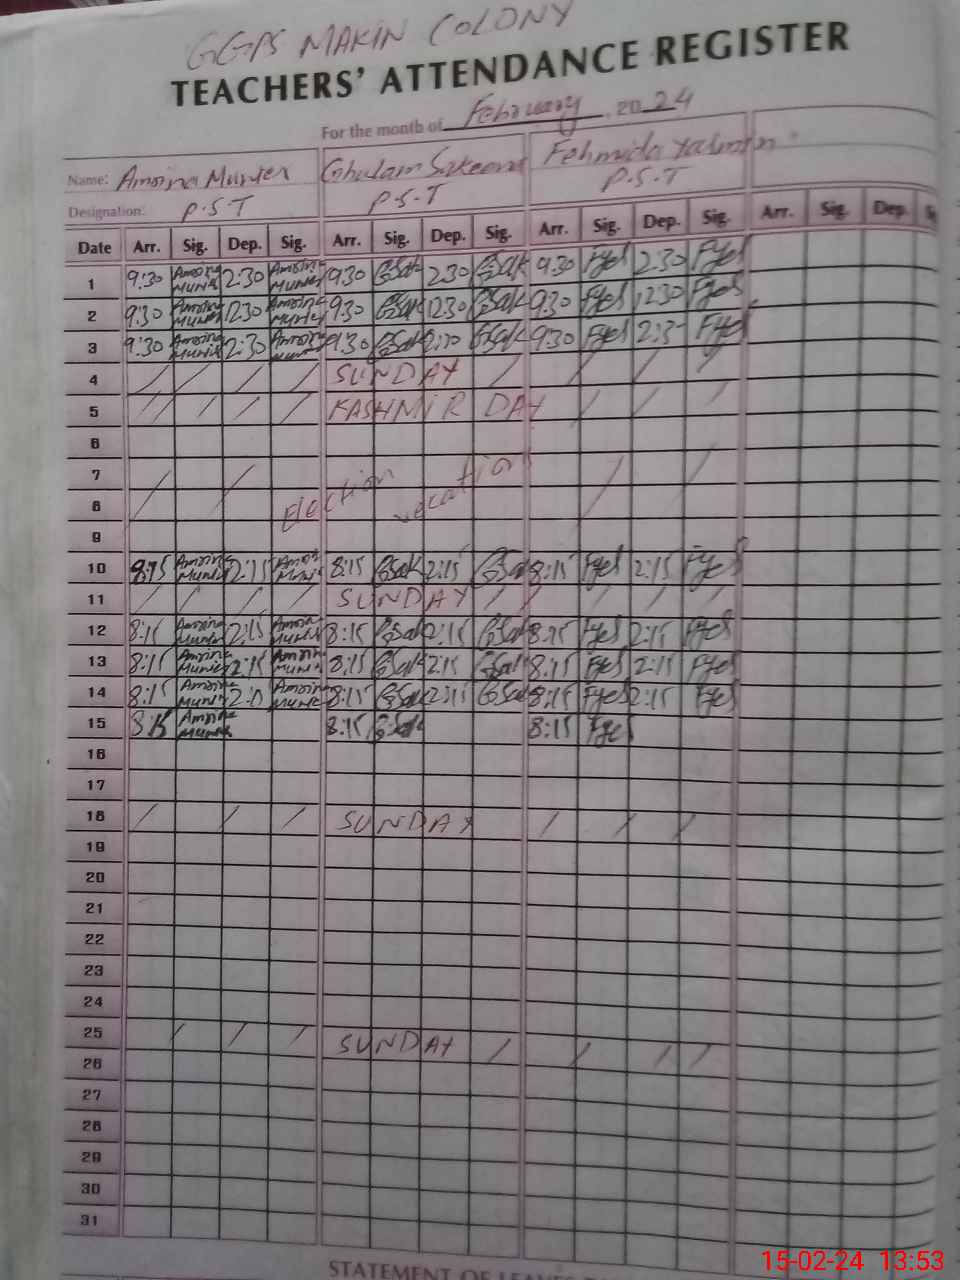 GGPS MAKIN COLONY
TEACHERS' ATTENDANCE REGISTER
For the month of February, 2024
Name: Amoina Munter Ghulam Sakeena Fehmida
Designation: P.S.T P.S.T P.S.T
Date Arr. Sig. Dep. Sig. Arr. Sig. Dep. Sig. Arr. Sig. Dep. Sig. Arr. Sig. Dep.
1 9:30 2:30 9:30 GSak 2:30 GSak 9:30 Fyes 2:30 Fyes
2 9:30 12:30 9:30 GSak 12:30 GSak 9:30 Fyes 12:30 Fyes
3 9:30 2:30 9:30 GSak GSak 9:30 Fyes Fyes
4 / / / / SUNDAY / / / / /
5 / / / / KASHMIR DAY / / /
6
7
8 Election vecation
9
10 8:15 2:15 8:15 GSak 2:15 8:15 Fyes 2:15 Fyes
11 / / / / SUNDAY / / / / / /
12 8:15 2:15 8:15 GSak 2:15 GSak 8:15 Fyes 2:15 Fyes
13 8:15 2:15 8:15 GSak 2:15 GSak 8:15 Fyes 2:15 Fyes
14 8:15 8:15 GSak 2:15 GSak 8:15 Fyes 2:15 Fyes
15 8:15 8:15 GSak 8:15 Fyes
16
17
18 / / / SUNDAY / / /
19
20
21
22
23
24
25 / / / SUNDAY / / / /
26
27
28
29
30
31
STATEMENT OF
15-02-24 13:53